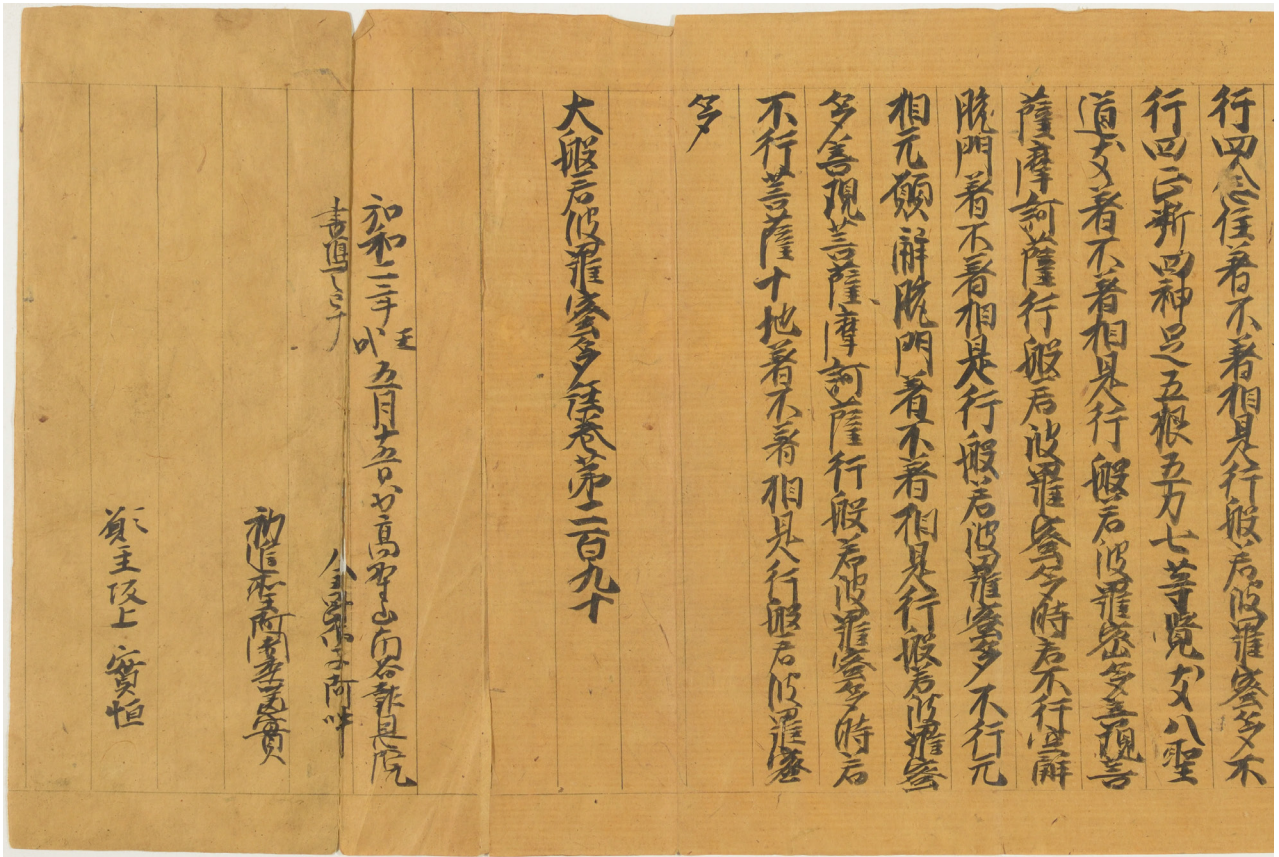 行四念住著不著相是行般若波羅蜜多不
行四正断四神足五根五力七等覺支八聖
道支著不著相是行般若波羅蜜多善現菩
薩摩訶薩行般若波羅蜜多時若不行空解
脱門著不著相是行般若波羅蜜多不行无
相无願解脱門著不著相是行般若波羅蜜
多善現菩薩摩訶薩行般若波羅蜜多時若
不行菩薩十地著不著相是行般若波羅蜜
多
大般若波羅蜜多経巻第二百九十
和二年 五月十五日 高野山南谷報恩院
書寫了
勸進聖阿闍梨 實
願主坂上實恒